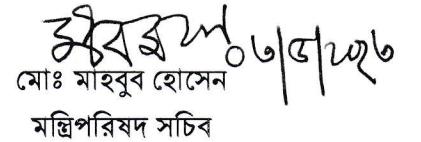 ০৩/৫/২০২৩
মোঃ মাহবুব হোসেন
মন্ত্রিপরিষদ সচিব